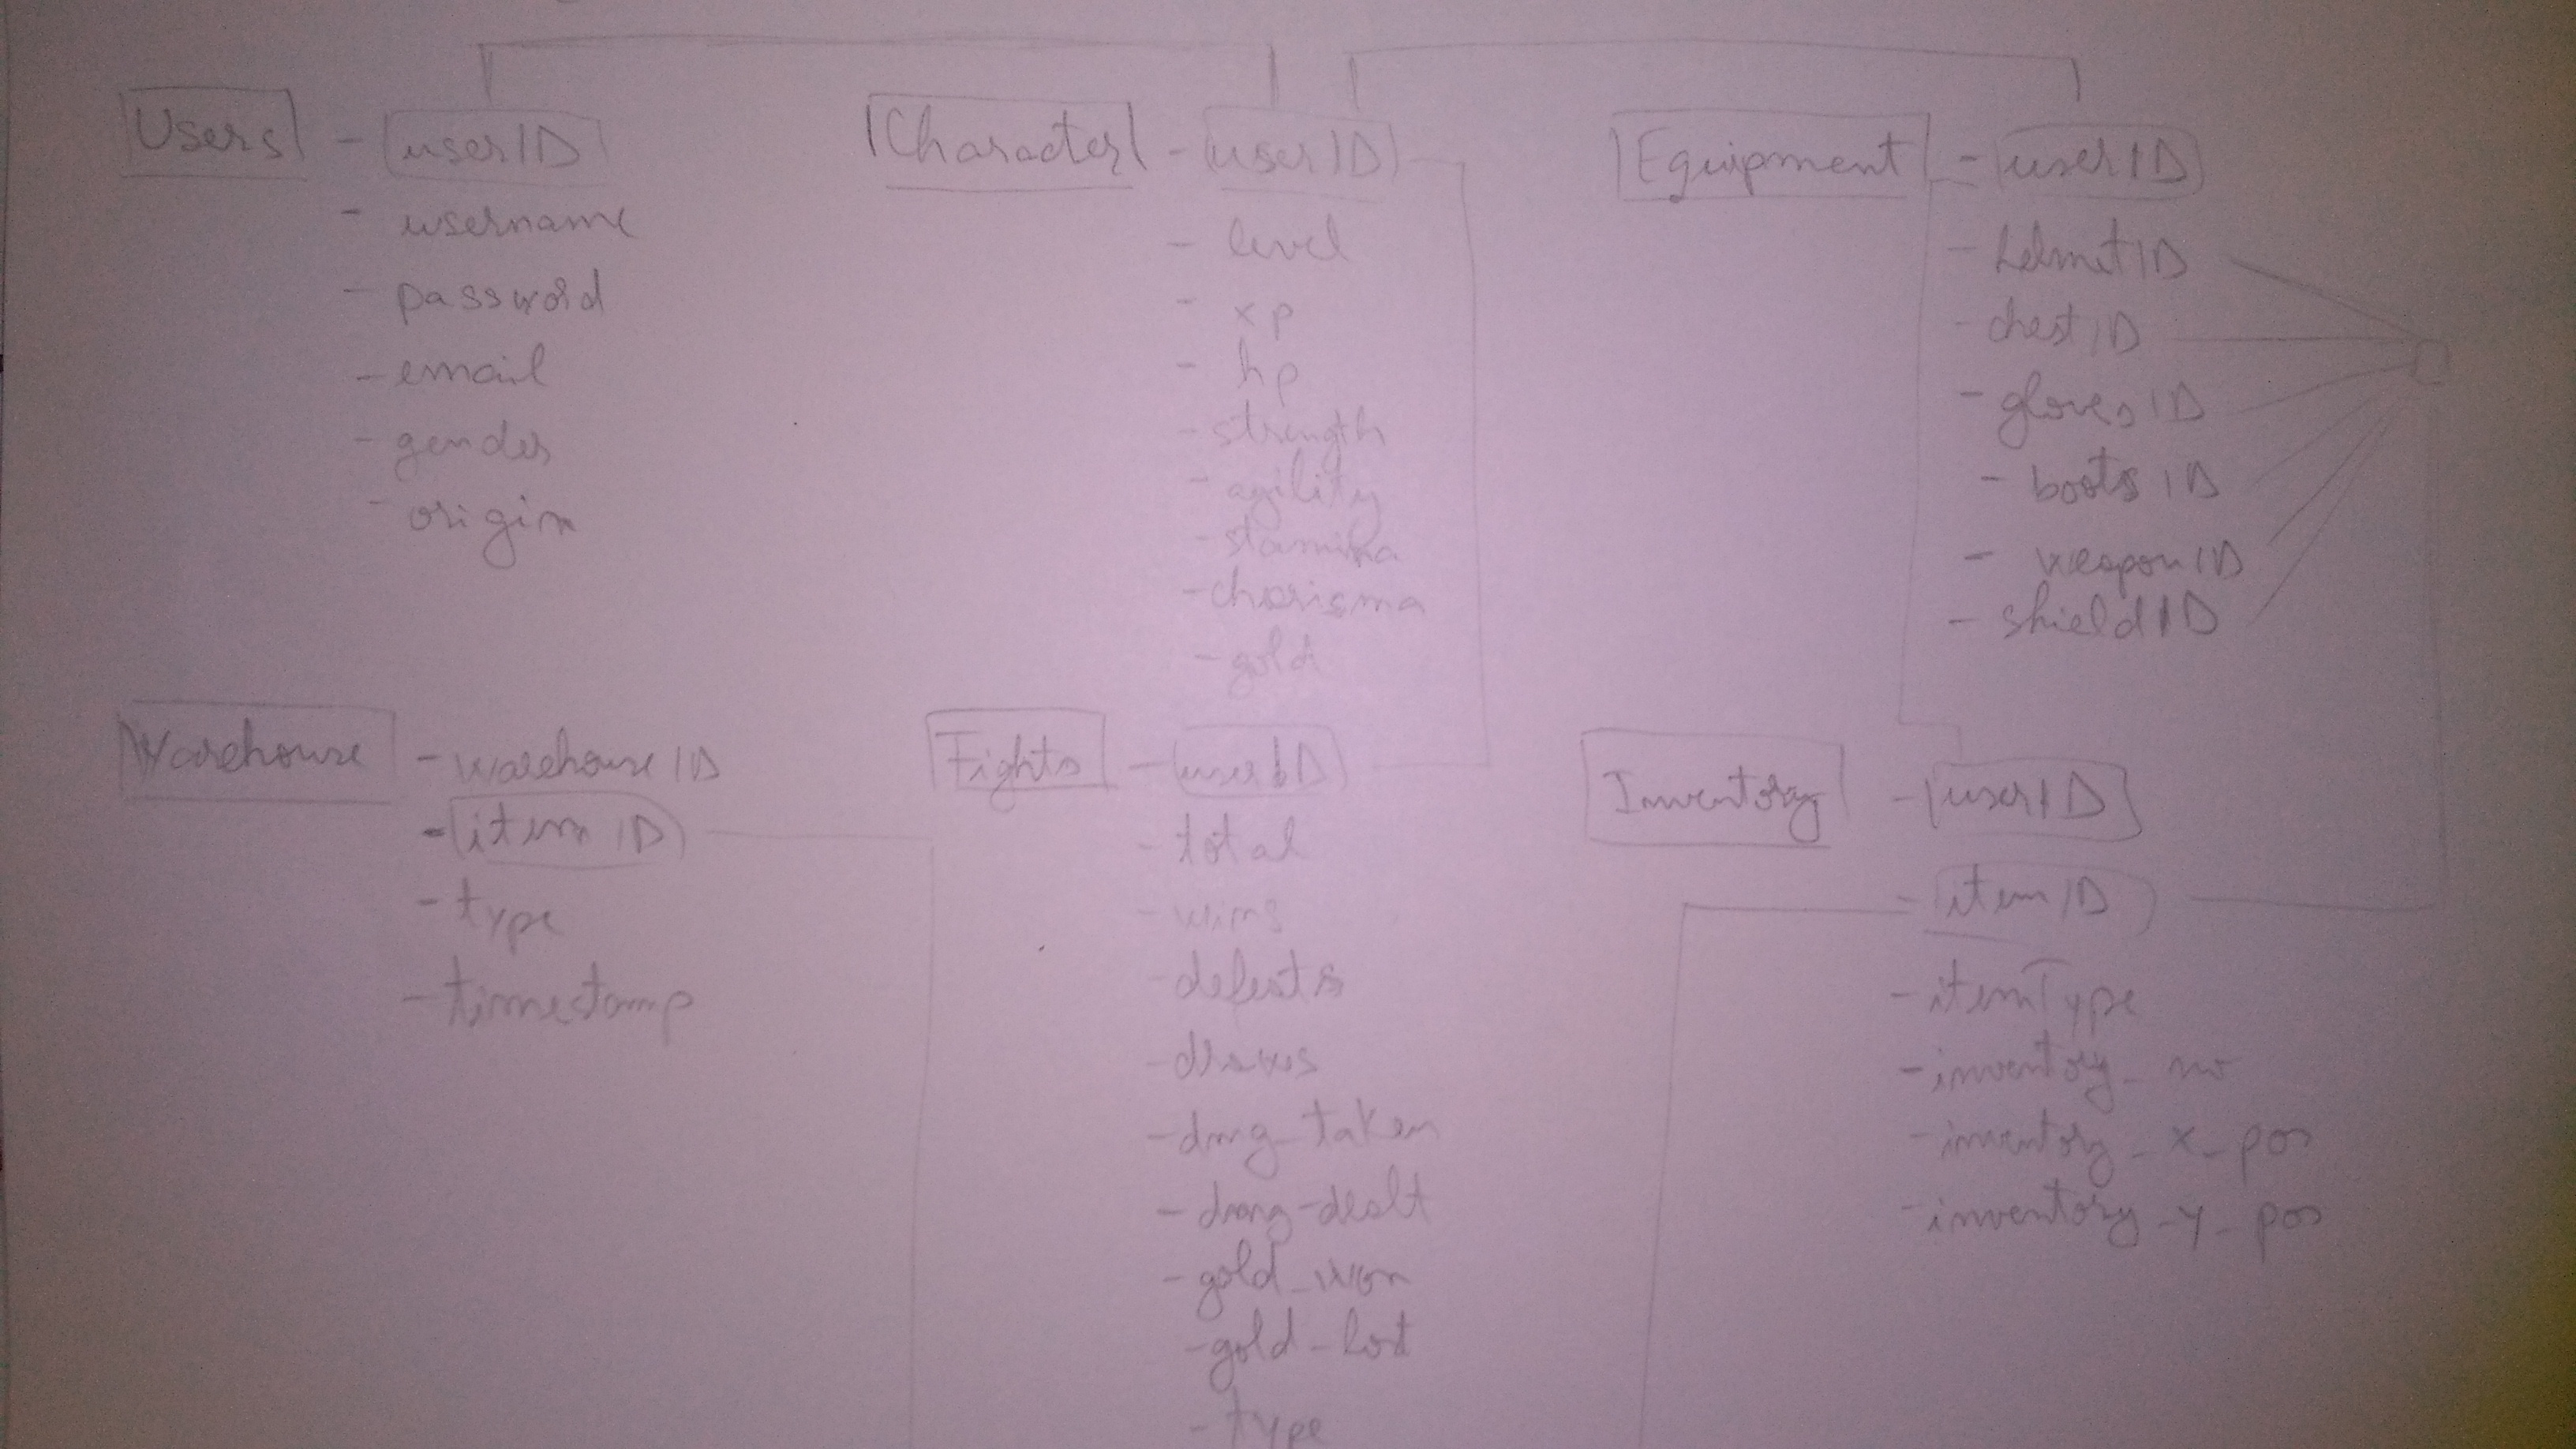 Users - userID
- username
- password
- email
- gender
- origin
Character - userID
- level
- xp
- hp
- strength
- agility
- stamina
- charisma
- gold
Equipment - userID
- helmetID
- chestID
- glovesID
- bootsID
- weaponID
- shieldID
Warehouse - warehouseID
- itemID
- type
- timestamp
Fights - userID
- total
- wins
- defeats
- draws
- dmg_taken
- dmg-dealt
- gold_won
- gold-lost
- type
Inventory - userID
- itemID
- itemType
- inventory_no
- inventory_x_pos
- inventory_y_pos